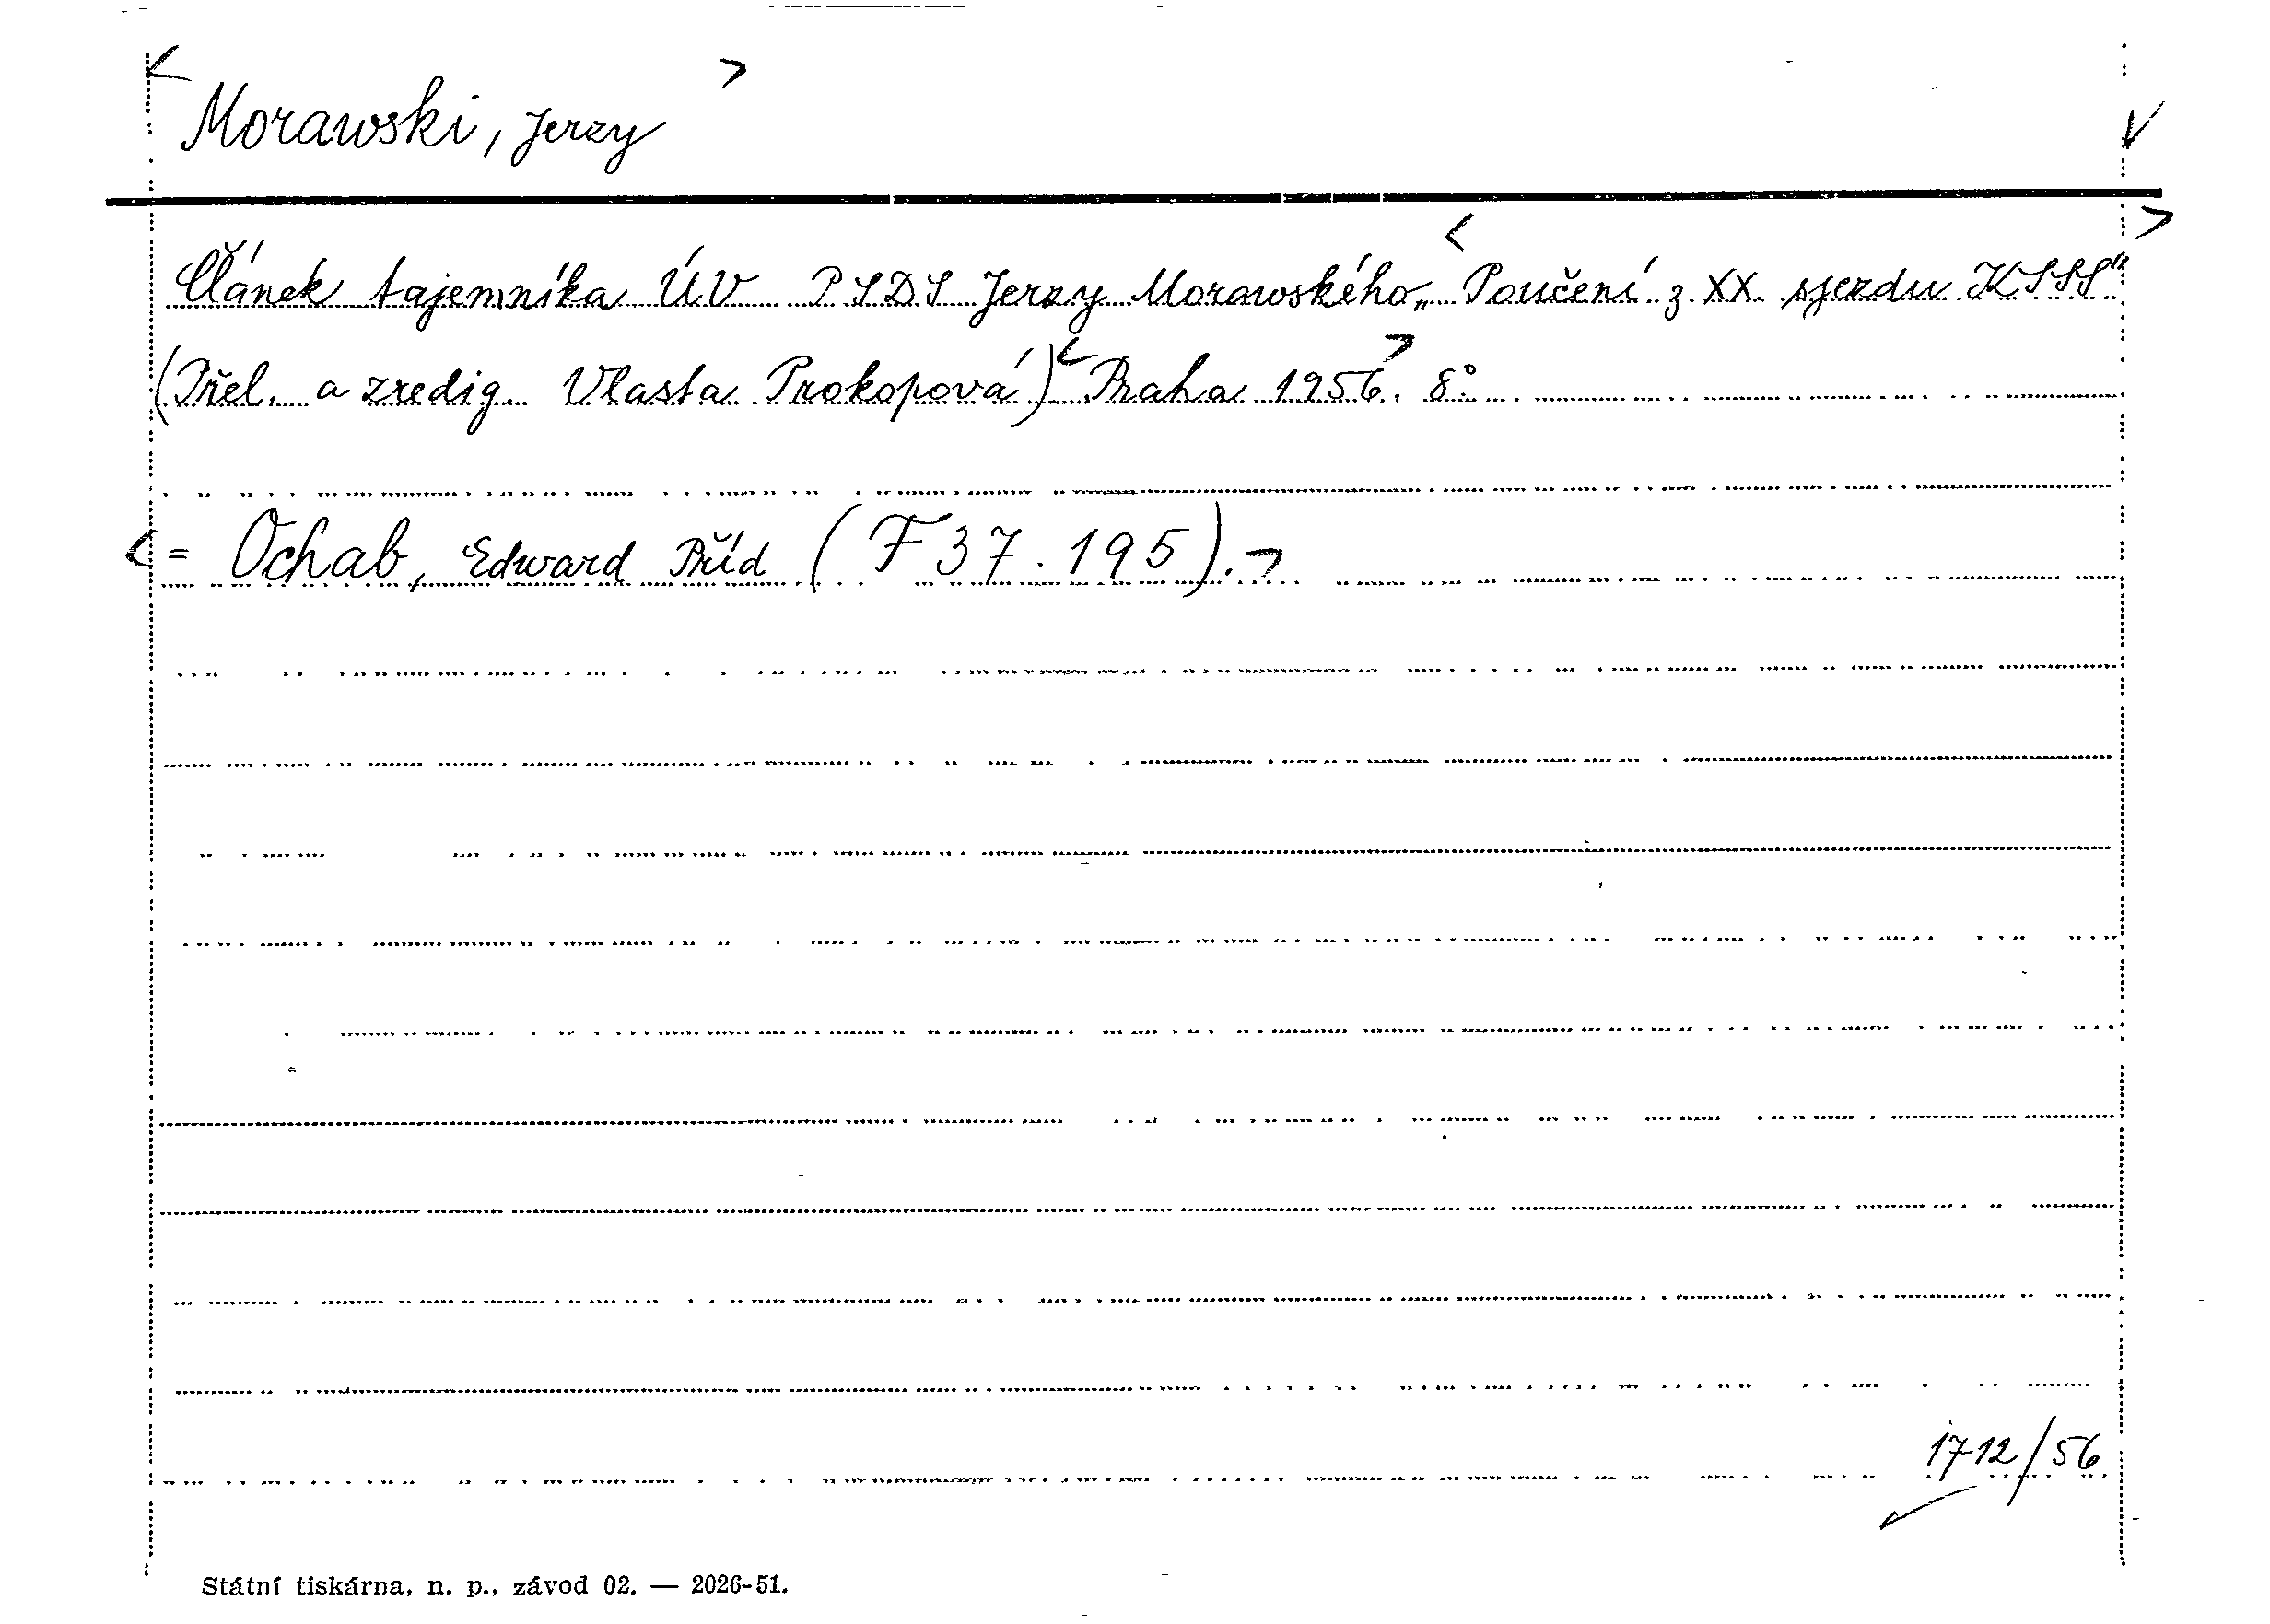 Morawski, Jerzy
Článek tajemníka ÚV PSDS Jerzy Morawského „Poučení z XX. sjezdu KSSS"
(Přel. a zredig. Vlasta Prokopová) Praha 1956. 8°.
= Ochab, Edward Příd (F 37.195).
1712/56
Státní tiskárna, n. p., závod 02. — 2026-51.